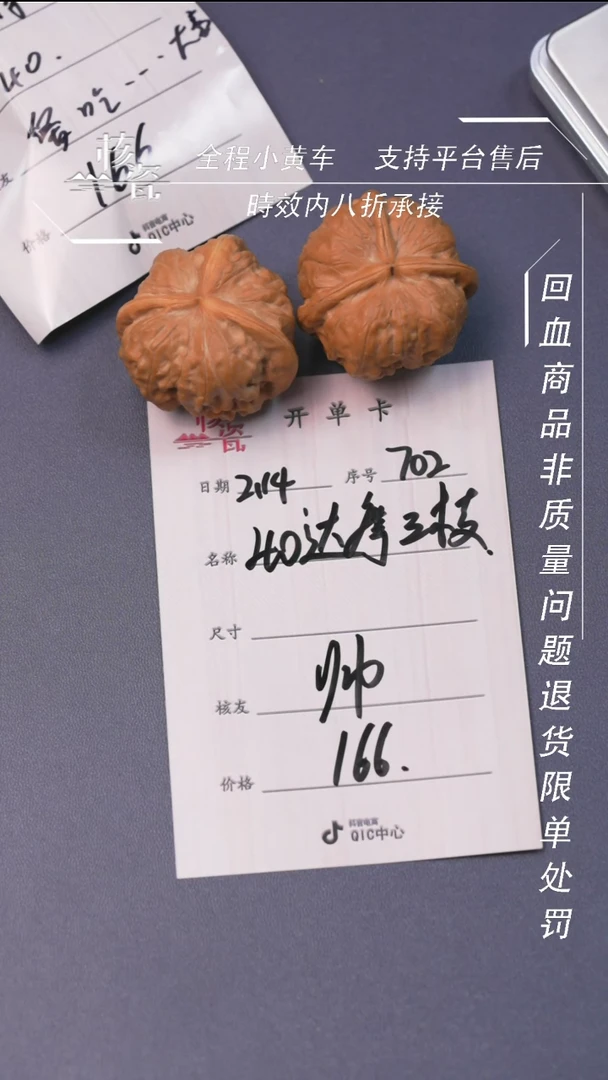 40.
贪吃...大
友
166
价格
抖音电商
QIC中心
核
全程小黄车 支持平台售后
時效内八折承接
回血商品非质量问题退货限单处罚
开单卡
日期 2.14 序号 702
名称 40达摩三棱
尺寸
核友 帅
价格 166.
抖音电商
QIC中心